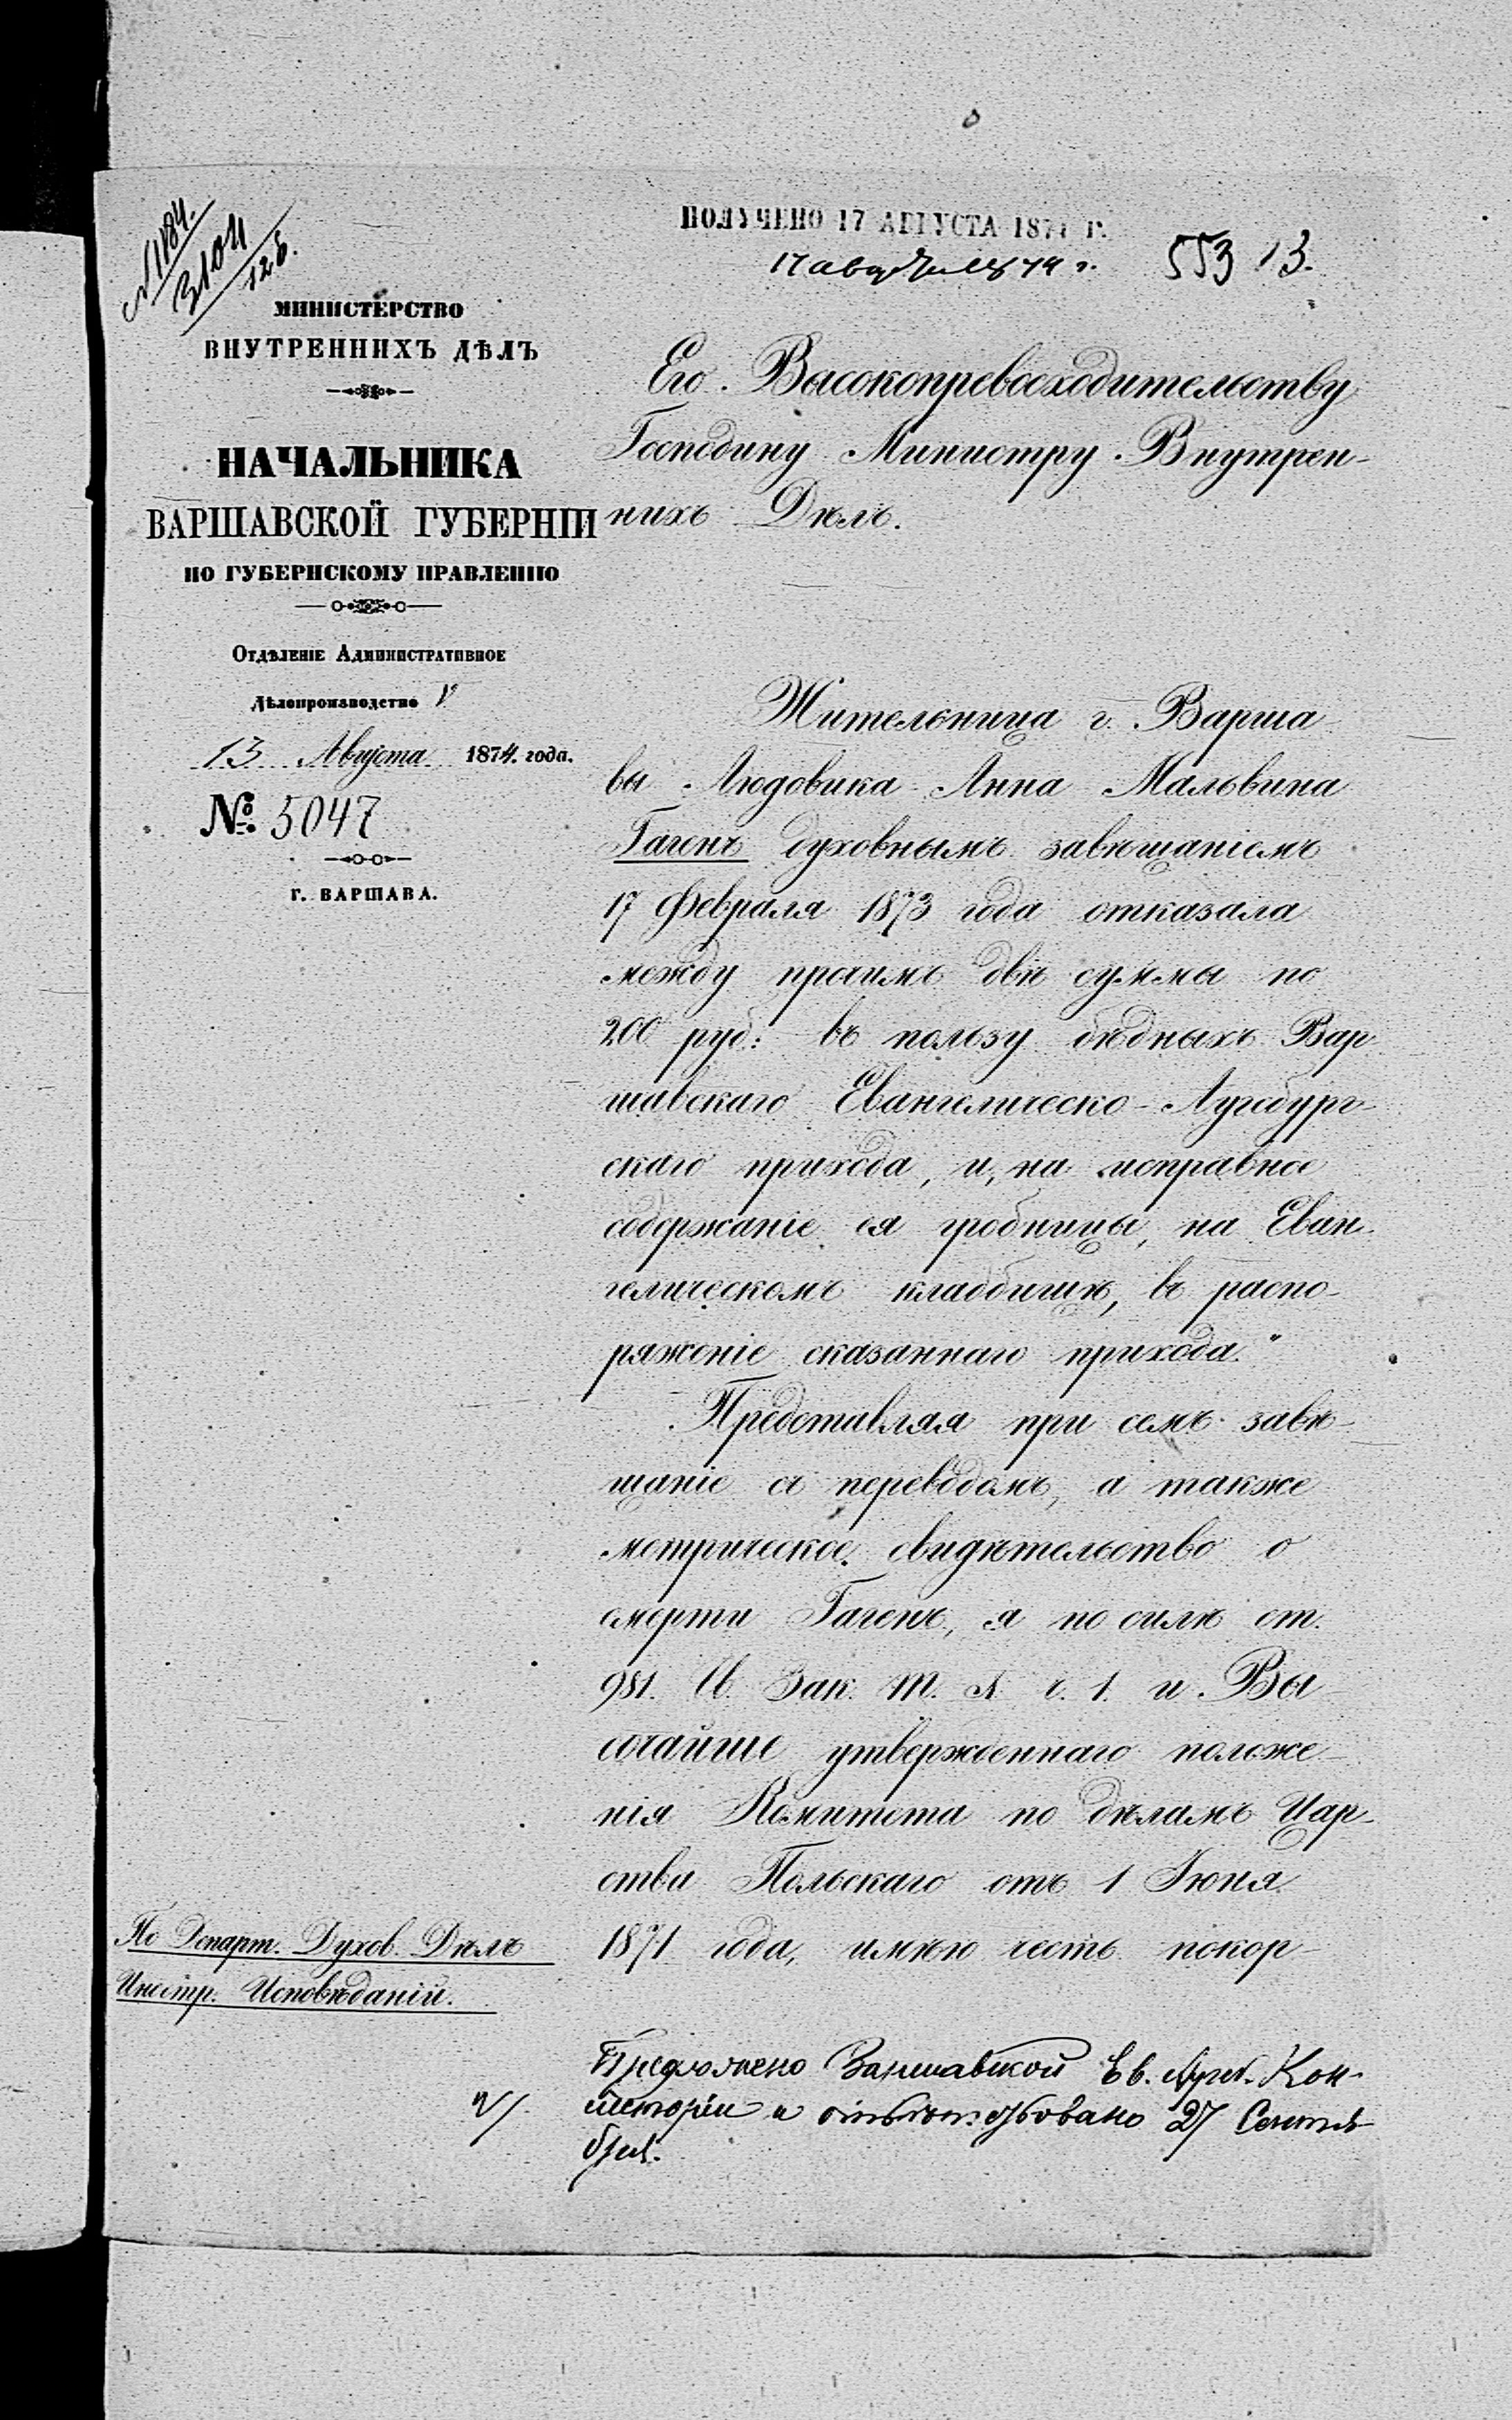 № 1184.
3104
126.
ПОЛУЧЕНО 17 АВГУСТА 1874 Г.
17 августа 1874 г.
553 13.
МИНИСТЕРСТВО
ВНУТРЕННИХЪ ДѢЛЪ
НАЧАЛЬНИКА
ВАРШАВСКОЙ ГУБЕРНІИ
ПО ГУБЕРНСКОМУ ПРАВЛЕНІЮ
Отдѣленіе Административное
Дѣлопроизводство V
13 Августа 1874 года.
№ 5047
Г. ВАРШАВА.
Его Высокопревосходительству
Господину Министру Внутрен-
нихъ Дѣлъ.
Жительница г.Варша-
вы Людовика-Анна Мальвина
Гагенъ духовнымъ завѣщаніемъ
17 Февраля 1873 года отказала
между прочимъ двѣ суммы по
200 руб: въ пользу бѣдныхъ Вар
шавскаго Евангелическо-Аугсбург-
скаго прихода, и, на исправное
содержаніе ея гробницы, на Еван-
гелическомъ кладбищѣ, въ распо-
ряженіе сказаннаго прихода."
Представляя при семъ завѣ-
щаніе съ переводомъ, а также
метрическое свидѣтельство о
смерти Гагенъ, я по силѣ ст.
981. Св. Зак. т. X ч. 1. и Вы
сочайше утвержденнаго положе-
нія Комитета по дѣламъ Цар-
ства Польскаго отъ 1 Июня
1871 года, имѣю честь покор-
По Департ. Духов. Дѣлъ
Иностр. Исповѣданій.
Предложено Варшавской Ев. Аугсб. Кон-
систоріи и отвѣтствовано 27 Сентя-
бря.